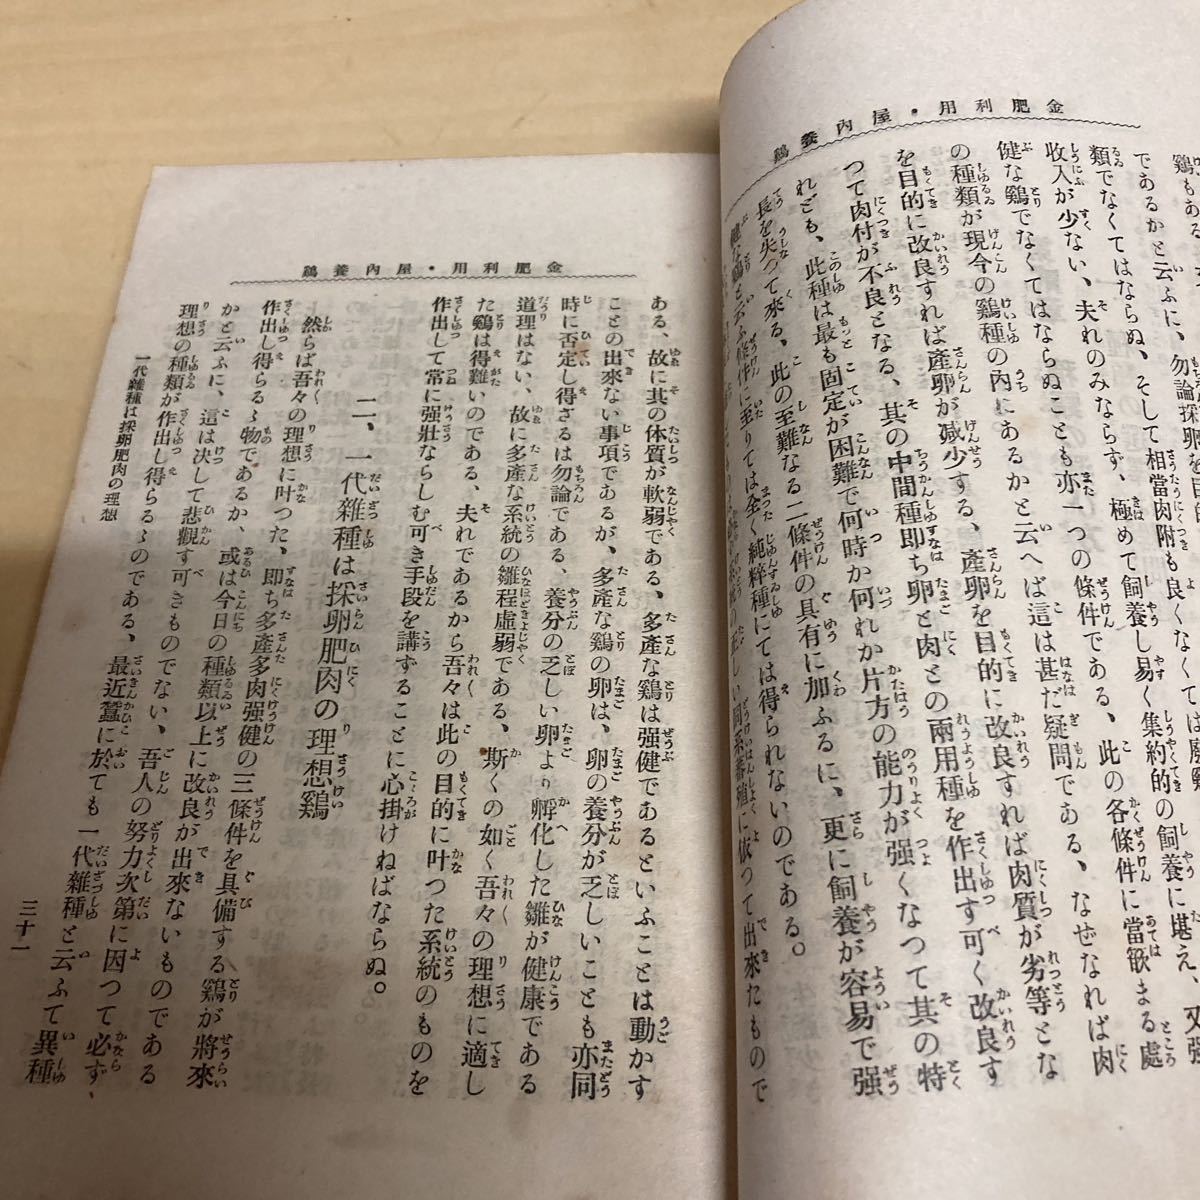 金肥利用・屋内養鷄
鷄もある、
であるかと云ふに、勿論採卵を目的
類でなくてはならぬ、そして相當肉附も良くなくては
收入が少ない、夫れのみならず、極めて飼養し易く集約的の飼養に堪え
健な鷄でなくてはならぬことも亦一つの條件である、此の各條件に當嵌まる處
の種類が現今の鷄種の內にあるかと云へば這は甚だ疑問である、なぜなれば肉
を目的に改良すれば產卵が減少する、產卵を目的に改良すれば肉質が劣等とな
つて肉付が不良となる、其の中間種卽ち卵と肉との兩用種を作出す可く改良す
れども、此種は最も固定が困難で何時か何れか片方の能力が强くなつて其の特
長を失つて來る、此の至難なる二條件の具有に加ふるに、更に飼養が容易で强
健な鷄と云ふ條件に至りては全く純粹種にては得られないのである。
同系蕃殖に依つて出來たもので
金肥利用・屋內養鷄
ある、故に其の体質が軟弱である、多產な鷄は强健であるといふことは動かす
ことの出來ない事項であるが、多產な鷄の卵は、卵の養分が乏しいことも亦同
時に否定し得ざるは勿論である、養分の乏しい卵より孵化した雛が健康である
道理はない、故に多產な系統の雛程虛弱である、斯くの如く吾々の理想に適し
た鷄は得難いのである、夫れであるから吾々は此の目的に叶つた系統のものを
作出して常に强壯ならしむ可き手段を講ずることに心掛けねばならぬ。
二、一代雜種は採卵肥肉の理想鷄
然らば吾々の理想に叶つた、卽ち多產多肉强健の三條件を具備する鷄が將來
作出し得らるゝ物であるか、或は今日の種類以上に改良が出來ないものである
かと云ふに、這は決して悲觀す可きものでない、吾人の努力次第に因つて必ず、
理想の種類が作出し得らるゝのである、最近蠶に於ても一代雜種と云ふて異種
一代雜種は採卵肥肉の理想
三十一